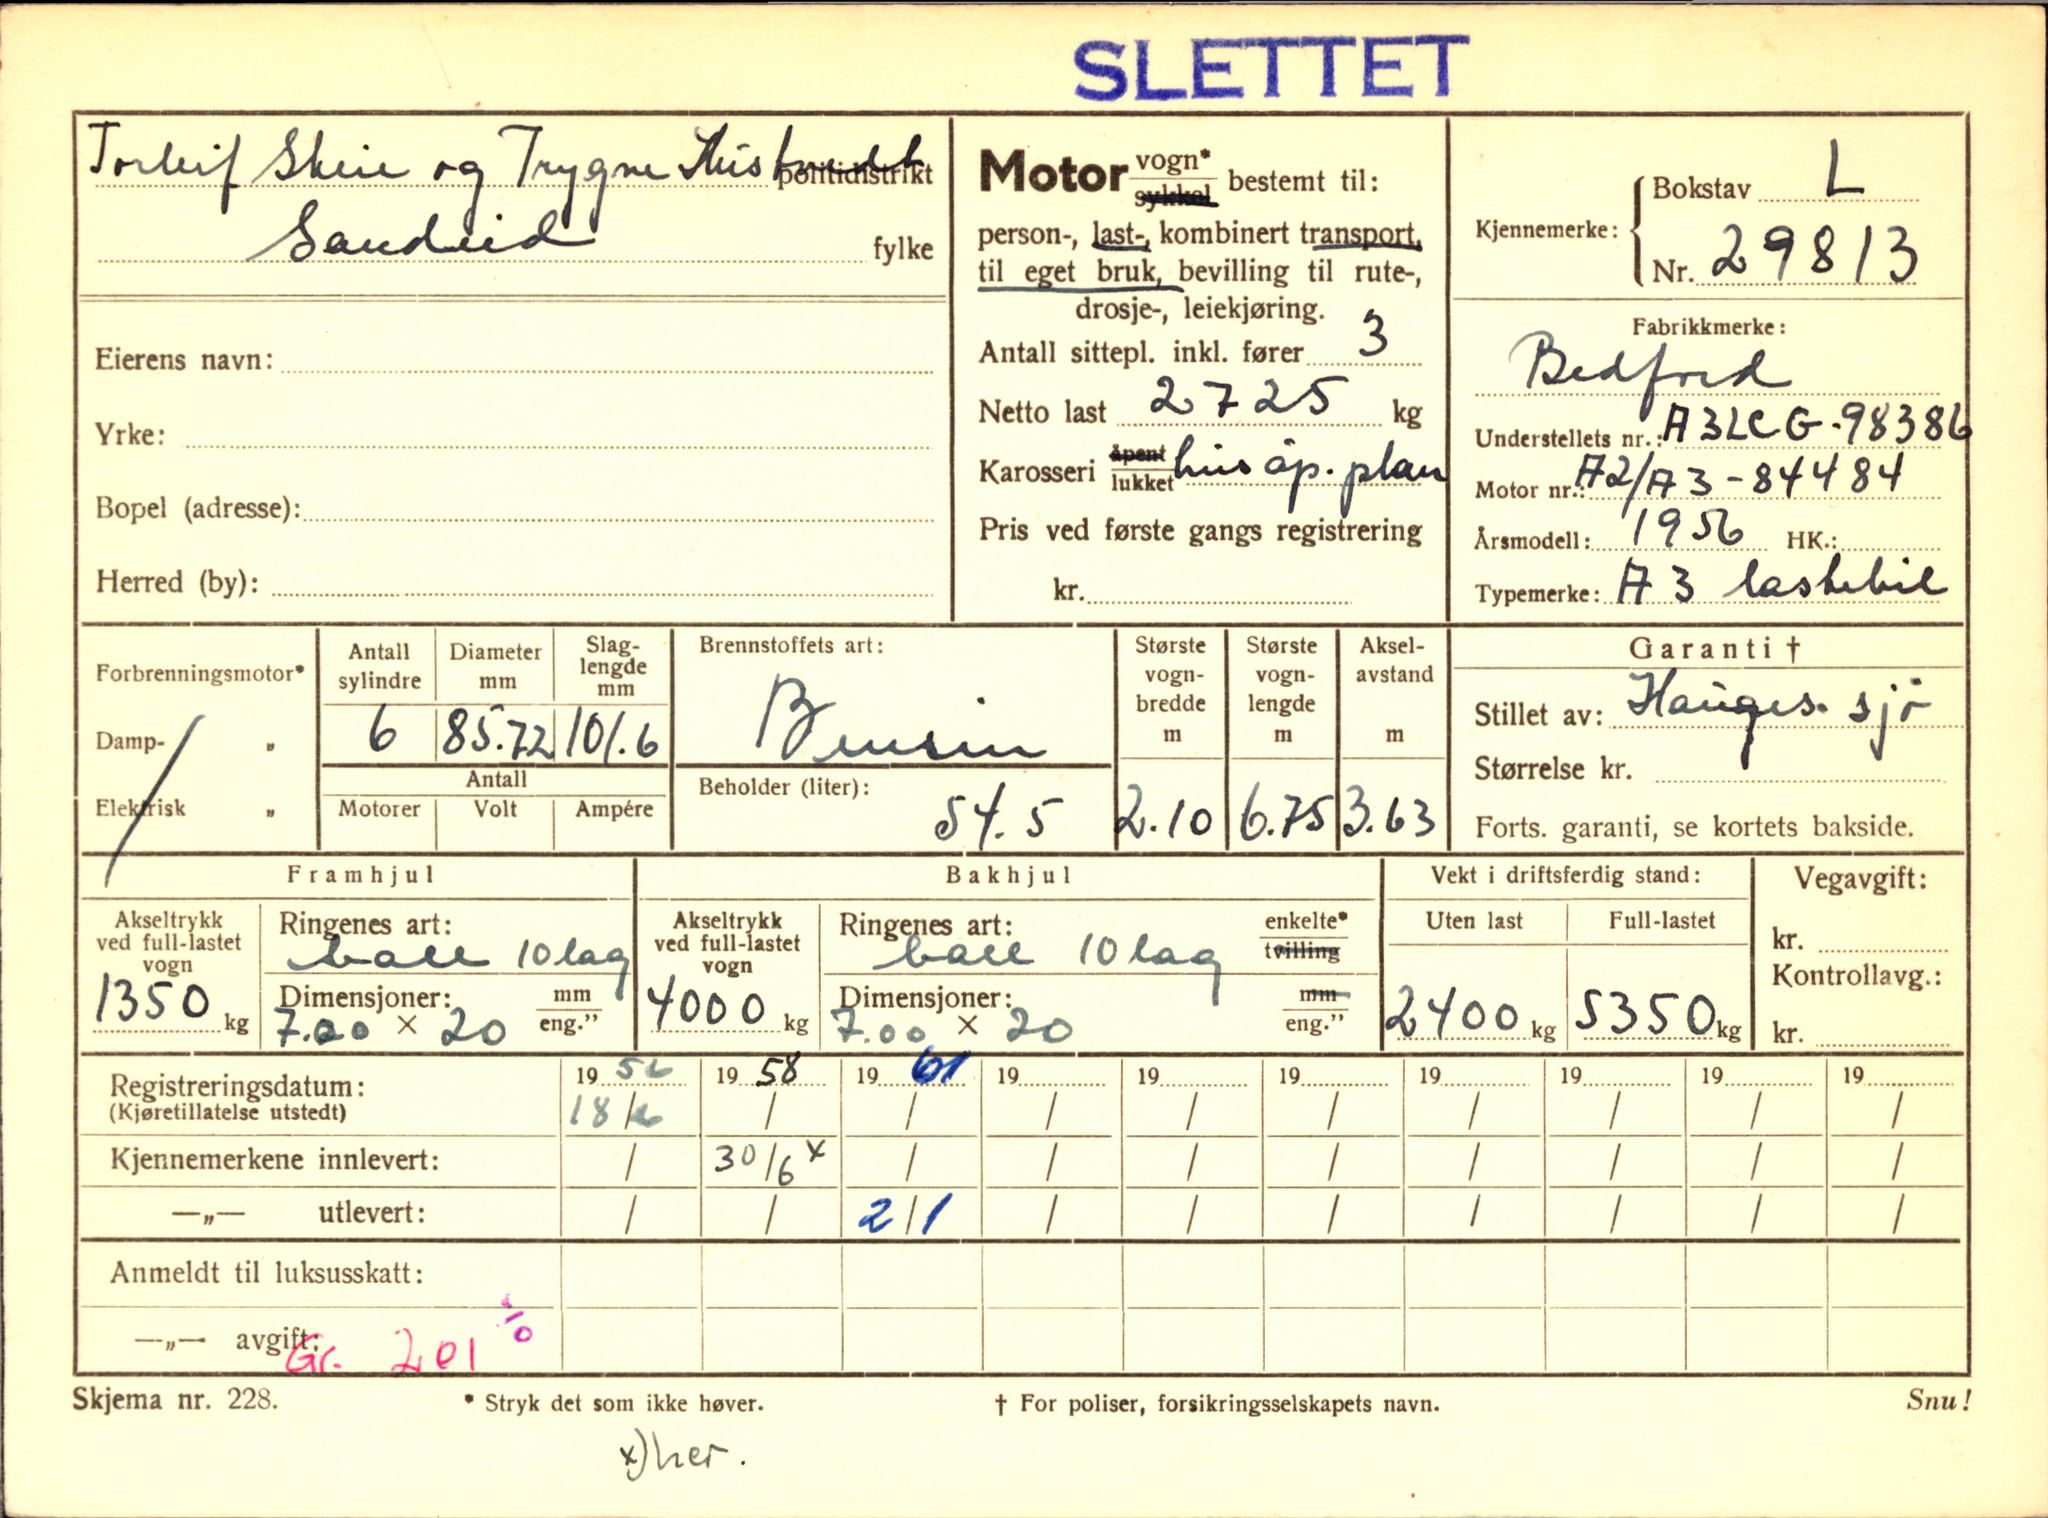 SLETTET
Torleif Skeie og Trygve politidistrikt
Sandeid fylke
Eierens navn:
Yrke:
Bopel (adresse):
Herred (by):
Motor vogn* sykkel bestemt til:
person-, last-, kombinert transport,
til eget bruk, bevilling til rute-,
drosje-, leiekjøring.
Antall sittepl. inkl. fører 3
Netto last 2725 kg
Karosseri åpent lukket hus åp. plan
Pris ved første gangs registrering
kr.
Kjennemerke: Bokstav L
Nr. 29813
Fabrikkmerke:
Bedford
Understellets nr.: A3LCG-98386
Motor nr.: A2/A3-84484
Årsmodell: 1956 HK.:
Typemerke: A3 lastebil
Forbrenningsmotor*
Damp- „
Elektrisk „
Antall sylindre Diameter mm Slaglengde mm
6 85.72 101.6
Antall
Motorer Volt Ampére
Brennstoffets art:
Bensin
Beholder (liter):
54.5
Største vogn-bredde m
2.10
Største vogn-lengde m
6.75
Aksel-avstand m
3.63
Garanti †
Stillet av: Hauges. sjø
Størrelse kr.
Forts. garanti, se kortets bakside.
Framhjul
Akseltrykk ved full-lastet vogn
1350 kg
Ringenes art:
ball 10 lag
Dimensjoner: mm
7.00 × 20 eng.”
Bakhjul
Akseltrykk ved full-lastet vogn
4000 kg
Ringenes art: enkelte*
ball 10 lag tvilling
Dimensjoner: mm
7.00 × 20 eng.”
Vekt i driftsferdig stand:
Uten last Full-lastet
2400 kg 5350 kg
Vegavgift:
kr.
Kontrollavg.:
kr.
Registreringsdatum: 19 56 19 58 19 61 19 19 19 19 19 19 19
(Kjøretillatelse utstedt) 18/6 / / / / / / / / /
Kjennemerkene innlevert: / 30/6 x / / / / / / / /
—„— utlevert: / / 2/1 / / / / / / /
Anmeldt til luksusskatt:
—„— avgift: Gr. 201
Skjema nr. 228. * Stryk det som ikke høver. † For poliser, forsikringsselskapets navn. Snu!
x) her.